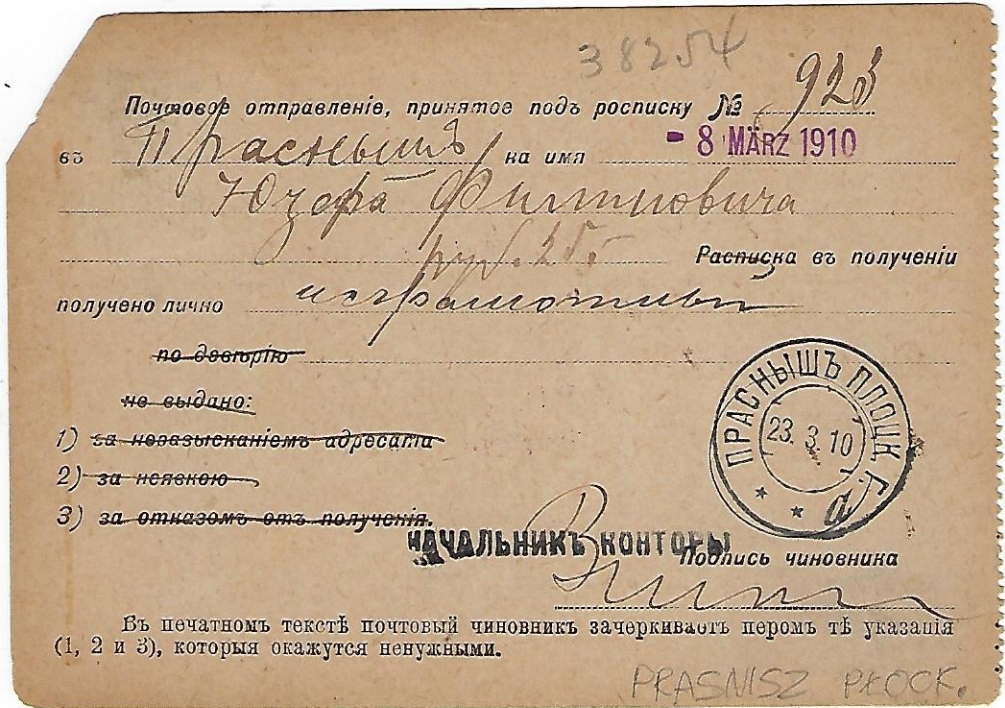 38254
Почтовое отправленіе, принятое подъ росписку № 923
въ Праснышъ на имя - 8 MÄRZ 1910
Юзефа
руб. 25.
Расписка въ полученіи
получено лично неграмотный
по довѣрію
не выдано:
1) за неазысканіемъ адресата
2) за неявкою
3) за отказомъ отъ полученія.
ПРАСНЫШЪ ПЛОЦК. Г.
23. 3. 10
а
НАЧАЛЬНИКЪ КОНТОРЫ
Подпись чиновника
Въ печатномъ текстѣ почтовый чиновникъ зачеркиваетъ перомъ тѣ указанія
(1, 2 и 3), которыя окажутся ненужными.
PRASNISZ PŁOCK.